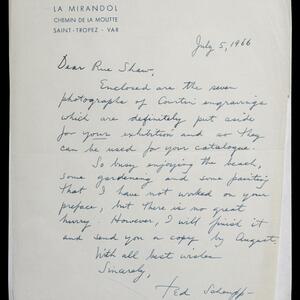 LA MIRANDOL
CHEMIN DE LA MOUTTE
SAINT-TROPEZ - VAR
July 5, 1966
Dear Rue Shaw,
Enclosed are the seven
photographs of Courtin engravings
which are definitely put aside
for your exhibition and so they
can be used for your catalogue.
So busy enjoying the beach,
some gardening and some painting
that I have not worked on your
preface, but there is no great
hurry. However, I will finish it
and send you a copy by August.
With all best wishes
Sincerely,
Ted Schempp